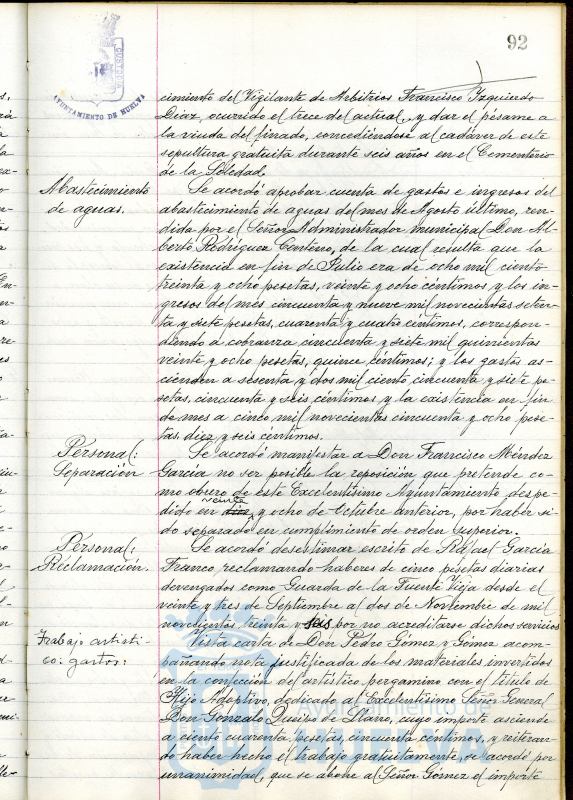 92
CUSTODIA
AYUNTAMIENTO DE HUELVA
cimiento del Vigilante de Arbitrios Francisco Izquierdo
Diaz, ocurrido el trece del actual, y dar el pésame a
la viuda del finado, concediéndose al cadáver de este
sepultura gratuita durante seis años en el Cementerio
de la Soledad.
Abastecimiento
de aguas.
Se acordó aprobar cuenta de gastos e ingresos del
abastecimiento de aguas del mes de Agosto último, ren-
dida por el Señor Administrador municipal Don Al-
berto Rodríguez Centeno, de la cual resulta que la
existencia en fin de Julio era de ocho mil ciento
treinta y ocho pesetas, veinte y ocho céntimos y los in-
gresos del mes cincuenta y nueve mil novecientas seten-
ta y siete pesetas, cuarenta y cuatro céntimos, correspon-
diendo a cobranza cincuenta y siete mil quinientas
veinte y ocho pesetas, quince céntimos; y los gastos as-
cienden a sesenta y dos mil ciento cincuenta y siete pe-
setas, cincuenta y seis céntimos y la existencia en fin
de mes a cinco mil novecientas cincuenta y ocho pese-
tas, diez y seis céntimos.
Personal:
Separación
Se acordó manifestar a Don Francisco Méndez
García no ser posible la reposición que pretende co-
mo obrero de este Excelentísimo Ayuntamiento, despe-
dido en veinte y ocho de Octubre anterior, por haber si-
do separado en cumplimiento de orden superior.
Personal:
Reclamación.
Se acordó desestimar escrito de Rafael García
Franco reclamando haberes de cinco pesetas diarias
devengados como Guarda de la Fuente Vieja desde el
veinte y tres de Septiembre al dos de Noviembre de mil
novecientos treinta y seis por no acreditarse dichos servicios
Trabajo artísti-
co: gastos:
Vista carta de Don Pedro Gómez y Gómez acom-
pañando nota justificada de los materiales invertidos
en la confección del artístico pergamino con el título de
Hijo Adoptivo, dedicado al Excelentísimo Señor General
Don Gonzalo Queipo de Llano, cuyo importe asciende
a ciento cuarenta pesetas, cincuenta céntimos, y reiteran-
do haber hecho el trabajo gratuitamente, se acordó por
unanimidad, que se abone al Señor Gómez el importe
Ayuntamiento de
HUELVA